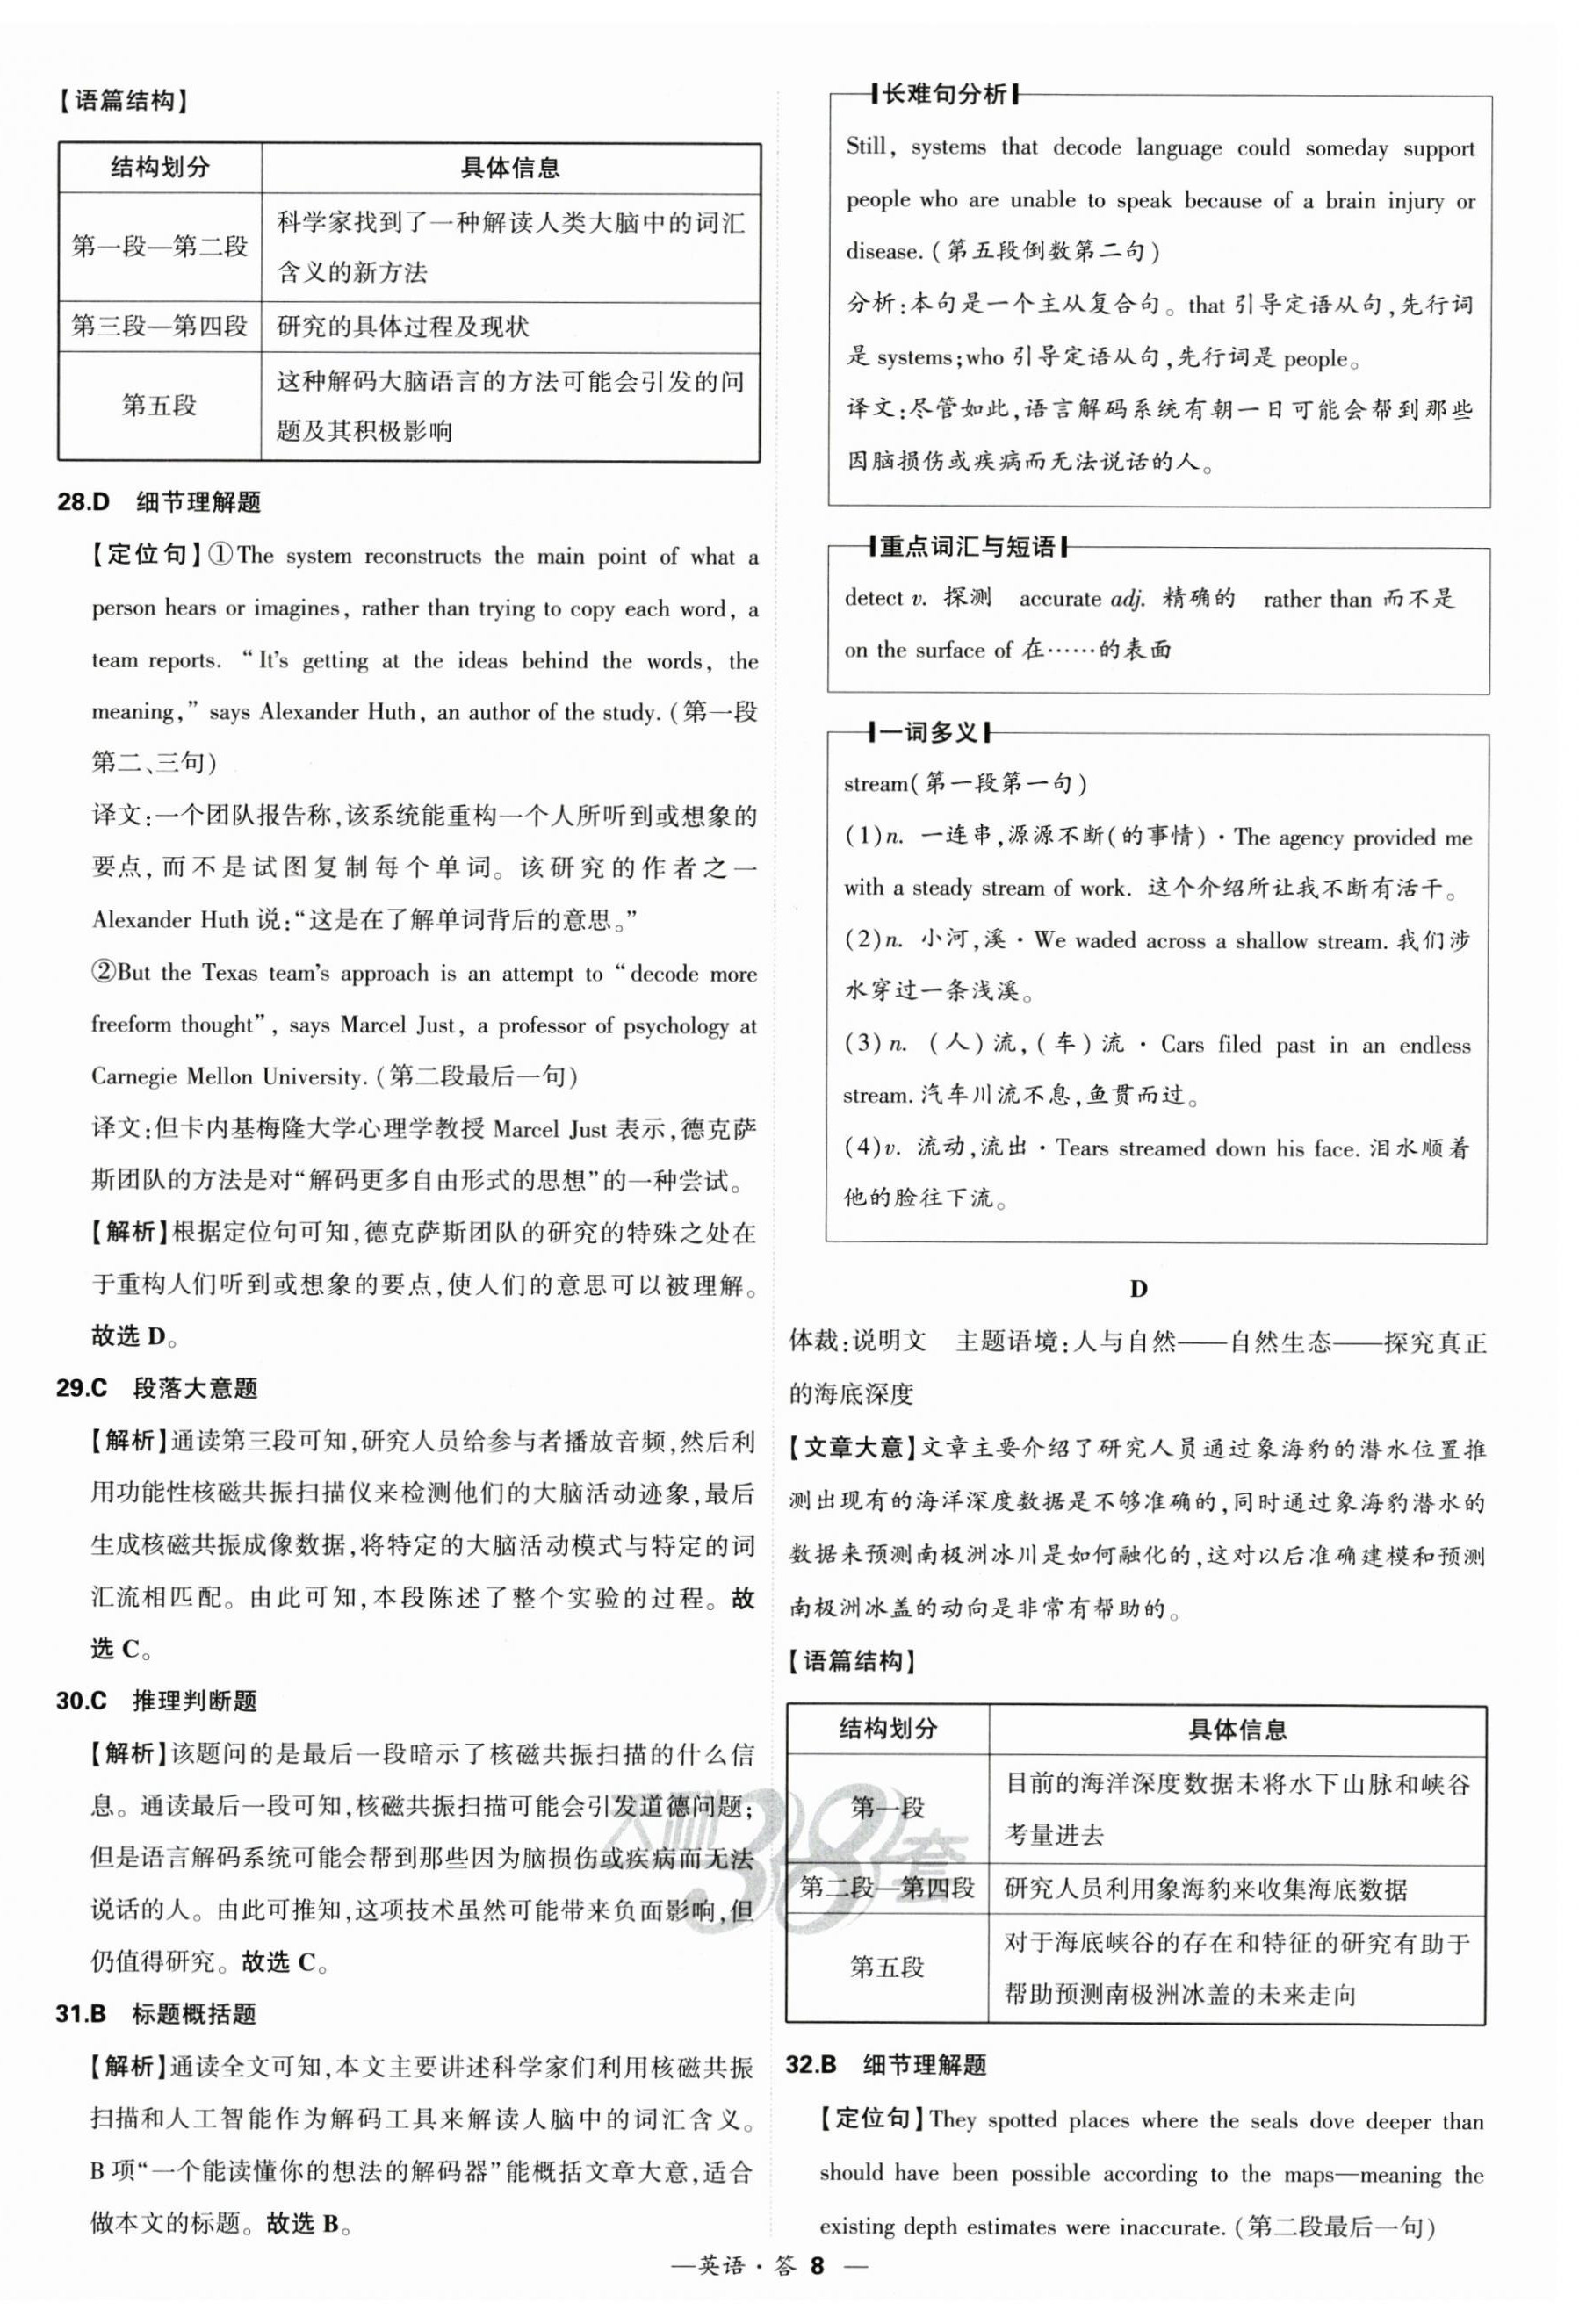 【语篇结构】
结构划分 具体信息
第一段—第二段 科学家找到了一种解读人类大脑中的词汇
含义的新方法
第三段—第四段 研究的具体过程及现状
第五段 这种解码大脑语言的方法可能会引发的问
题及其积极影响
28.D 细节理解题
【定位句】①The system reconstructs the main point of what a
person hears or imagines, rather than trying to copy each word, a
team reports. “It’s getting at the ideas behind the words, the
meaning,” says Alexander Huth, an author of the study. (第一段
第二、三句)
译文:一个团队报告称,该系统能重构一个人所听到或想象的
要点,而不是试图复制每个单词。该研究的作者之一
Alexander Huth 说:“这是在了解单词背后的意思。”
②But the Texas team’s approach is an attempt to “decode more
freeform thought”, says Marcel Just, a professor of psychology at
Carnegie Mellon University. (第二段最后一句)
译文:但卡内基梅隆大学心理学教授 Marcel Just 表示,德克萨
斯团队的方法是对“解码更多自由形式的思想”的一种尝试。
【解析】根据定位句可知,德克萨斯团队的研究的特殊之处在
于重构人们听到或想象的要点,使人们的意思可以被理解。
故选 D。
29.C 段落大意题
【解析】通读第三段可知,研究人员给参与者播放音频,然后利
用功能性核磁共振扫描仪来检测他们的大脑活动迹象,最后
生成核磁共振成像数据,将特定的大脑活动模式与特定的词
汇流相匹配。由此可知,本段陈述了整个实验的过程。故
选 C。
30.C 推理判断题
【解析】该题问的是最后一段暗示了核磁共振扫描的什么信
息。通读最后一段可知,核磁共振扫描可能会引发道德问题;
但是语言解码系统可能会帮到那些因为脑损伤或疾病而无法
说话的人。由此可推知,这项技术虽然可能带来负面影响,但
仍值得研究。故选 C。
31.B 标题概括题
【解析】通读全文可知,本文主要讲述科学家们利用核磁共振
扫描和人工智能作为解码工具来解读人脑中的词汇含义。
B 项“一个能读懂你的想法的解码器”能概括文章大意,适合
做本文的标题。故选 B。
长难句分析
Still, systems that decode language could someday support
people who are unable to speak because of a brain injury or
disease. (第五段倒数第二句)
分析:本句是一个主从复合句。that 引导定语从句,先行词
是 systems;who 引导定语从句,先行词是 people。
译文:尽管如此,语言解码系统有朝一日可能会帮到那些
因脑损伤或疾病而无法说话的人。
重点词汇与短语
detect v. 探测 accurate adj. 精确的 rather than 而不是
on the surface of 在……的表面
一词多义
stream(第一段第一句)
(1)n. 一连串,源源不断(的事情)·The agency provided me
with a steady stream of work. 这个介绍所让我不断有活干。
(2)n. 小河,溪·We waded across a shallow stream. 我们涉
水穿过一条浅溪。
(3)n. (人)流,(车)流·Cars filed past in an endless
stream. 汽车川流不息,鱼贯而过。
(4)v. 流动,流出·Tears streamed down his face. 泪水顺着
他的脸往下流。
D
体裁:说明文 主题语境:人与自然——自然生态——探究真正
的海底深度
【文章大意】文章主要介绍了研究人员通过象海豹的潜水位置推
测出现有的海洋深度数据是不够准确的,同时通过象海豹潜水的
数据来预测南极洲冰川是如何融化的,这对以后准确建模和预测
南极洲冰盖的动向是非常有帮助的。
【语篇结构】
结构划分 具体信息
第一段 目前的海洋深度数据未将水下山脉和峡谷
考量进去
第二段—第四段 研究人员利用象海豹来收集海底数据
第五段 对于海底峡谷的存在和特征的研究有助于
帮助预测南极洲冰盖的未来走向
32.B 细节理解题
【定位句】They spotted places where the seals dove deeper than
should have been possible according to the maps—meaning the
existing depth estimates were inaccurate. (第二段最后一句)
天利38套
—英语·答 8 —